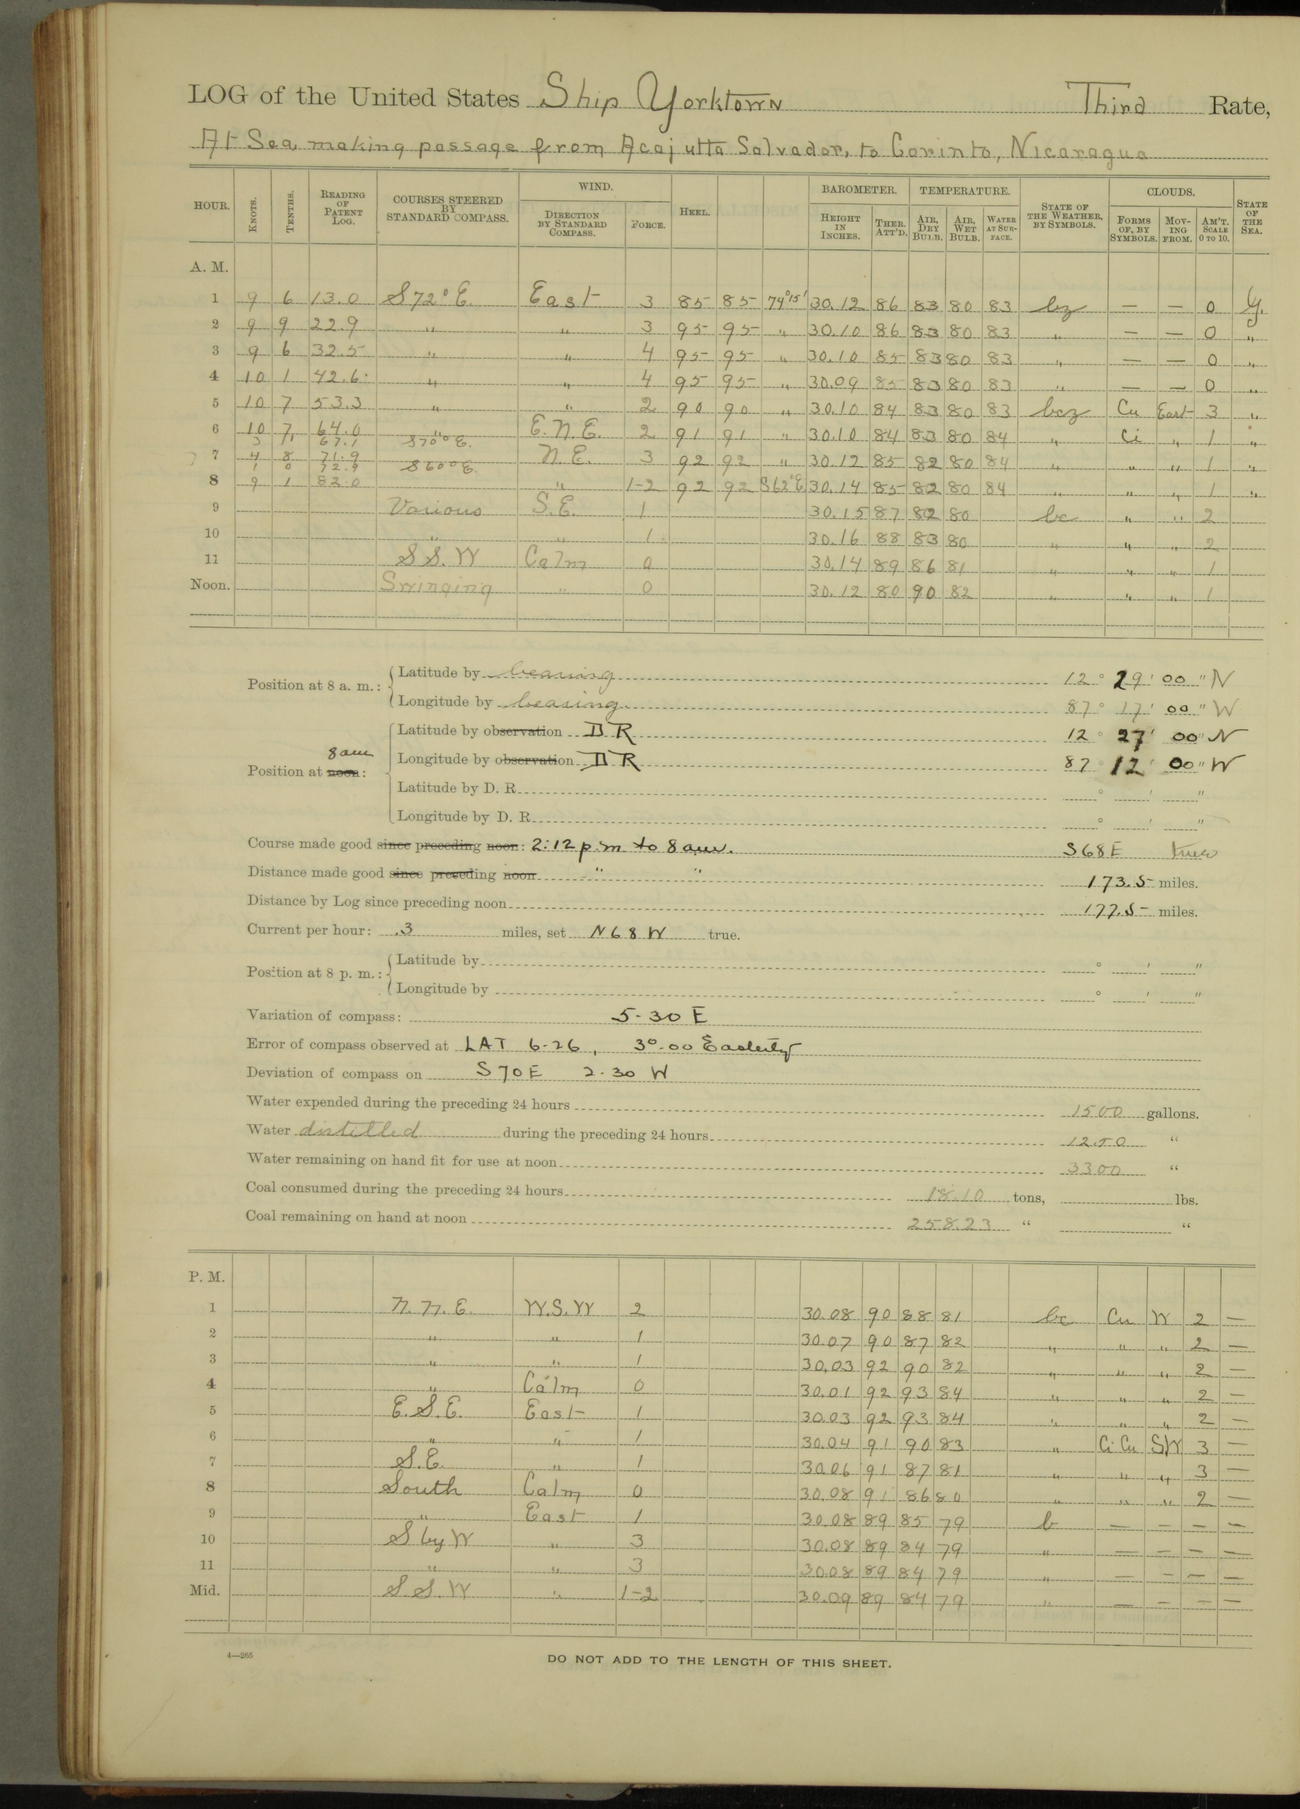 LOG of the United States Ship Yorktown Third Rate,
At Sea making passage from Acajutta Salvador, to Corinto, Nicaragua
HOUR. KNOTS. TENTHS. READING OF PATENT LOG. COURSES STEERED BY STANDARD COMPASS. WIND. DIRECTION BY STANDARD COMPASS. FORCE. HEEL. BAROMETER. HEIGHT IN INCHES. THER. ATT'D. TEMPERATURE. AIR, DRY BULB. AIR, WET BULB. WATER AT SURFACE. STATE OF THE WEATHER, BY SYMBOLS. CLOUDS. FORMS OF, BY SYMBOLS. MOVING FROM. AM'T. SCALE 0 TO 10. STATE OF THE SEA.
A. M.
1 9 6 13.0 S 72° E. East 3 85 85 74°15' 30.12 86 83 80 83 bz — — 0
2 9 9 22.9 " " 3 95 95 " 30.10 86 83 80 83 " — — 0 "
3 9 6 32.5 " " 4 95 95 " 30.10 85 83 80 83 " — — 0 "
4 10 1 42.6 " " 4 95 95 " 30.09 85 83 80 83 " — — 0 "
5 10 7 53.3 " " 2 90 90 " 30.10 84 83 80 83 bcz Cu East 3 "
6 10 7 64.0 " E. N. E. 2 91 91 " 30.10 84 83 80 84 " Ci " 1 "
3 1 67.1 S 70° E.
7 4 8 71.9 N. E. 3 92 92 " 30.12 85 82 80 84 " " " 1 "
1 0 72.9 S 60° E.
8 9 1 82.0 " 1-2 92 92 S62°E 30.14 85 82 80 84 " " " 1 "
9 Various S. E. 1 30.15 87 82 80 bc " " 2
10 " " 1 30.16 88 83 80 " " " 2
11 S S. W Calm 0 30.14 89 86 81 " " " 1
Noon. Swinging " 0 30.12 80 90 82 " " " 1
Position at 8 a. m.: Latitude by bearing 12° 29' 00" N
Longitude by bearing 87° 17' 00" W
Position at noon: 8 am Latitude by observation D R 12° 27' 00" N
Longitude by observation D R 87 12' 00" W
Latitude by D. R. ° ' "
Longitude by D. R. ° ' "
Course made good since preceding noon: 2:12 p.m to 8 am. S 68 E true
Distance made good since preceding noon " " 173.5 miles.
Distance by Log since preceding noon 177.5 miles.
Current per hour: .3 miles, set N 68 W true.
Position at 8 p. m.: Latitude by ° ' "
Longitude by ° ' "
Variation of compass: 5-30 E
Error of compass observed at LAT 6-26, 3°-00 Easterly
Deviation of compass on S 70 E 2-30 W
Water expended during the preceding 24 hours 1500 gallons.
Water distilled during the preceding 24 hours 1250 "
Water remaining on hand fit for use at noon 3300 "
Coal consumed during the preceding 24 hours 18.10 tons, lbs.
Coal remaining on hand at noon 258.23 " "
P. M.
1 N. N. E. W. S. W 2 30.08 90 88 81 bc Cu W 2 —
2 " " 1 30.07 90 87 82 " " " 2 —
3 " " 1 30.03 92 90 82 " " " 2 —
4 " Calm 0 30.01 92 93 84 " " " 2 —
5 E. S. E. East 1 30.03 92 93 84 " " " 2 —
6 " " 1 30.04 91 90 83 " Ci Cu SW 3 —
7 S. E. " 1 30.06 91 87 81 " " " 3 —
8 South Calm 0 30.08 91 86 80 " " " 2 —
9 " East 1 30.08 89 85 79 b — — — —
10 S by W " 3 30.08 89 84 79 " — — — —
11 " " 3 30.08 89 84 79 " — — — —
Mid. S. S. W " 1-2 30.09 89 84 79 " — — — —
4—265
DO NOT ADD TO THE LENGTH OF THIS SHEET.